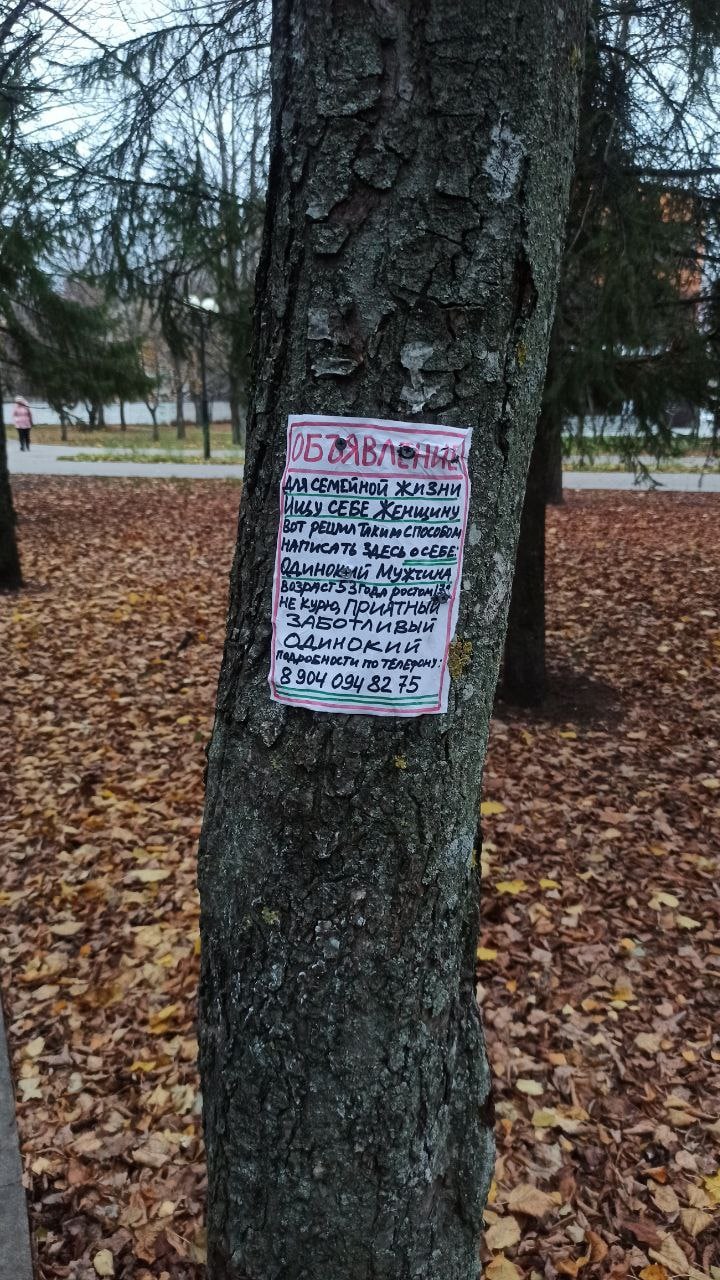 ОБЪЯВЛЕНИЕ
ДЛЯ СЕМЕЙНОЙ ЖИЗНИ
ИЩУ СЕБЕ ЖЕНЩИНУ
ВОТ РЕШИЛ ТАКИМ СПОСОБОМ
НАПИСАТЬ ЗДЕСЬ О СЕБЕ:
ОДИНОКИЙ МУЖЧИНА
ВОЗРАСТ 53 ГОДА РОСТОМ
НЕ КУРЮ, ПРИЯТНЫЙ
ЗАБОТЛИВЫЙ
ОДИНОКИЙ
ПОДРОБНОСТИ ПО ТЕЛЕФОНУ:
8 904 094 82 75